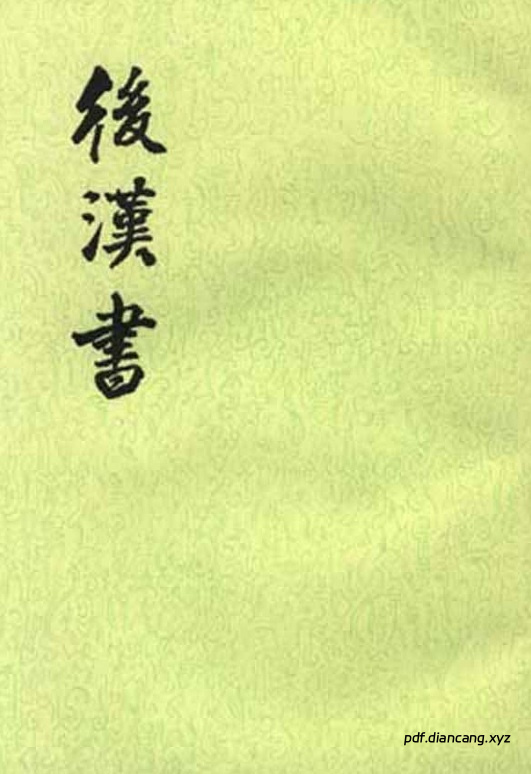 後漢書
pdf.diancang.xyz